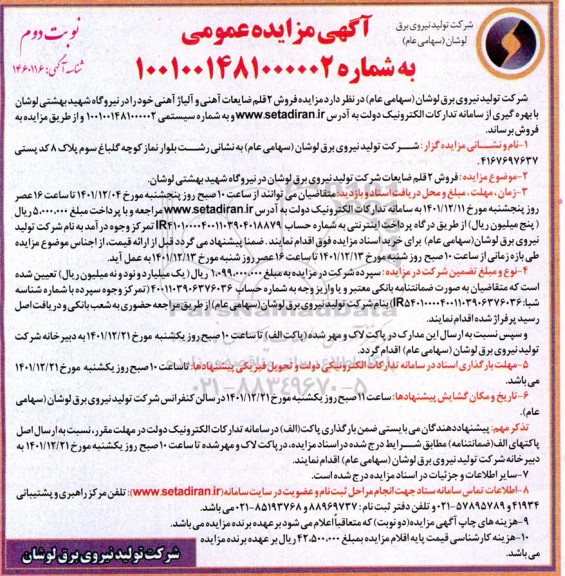 شرکت تولید نیروی برق
لوشان (سهامی عام)
آگهی مزایده عمومی
به شماره ۱۰۰۱۰۰۱۴۸۱۰۰۰۰۰۲
نوبت دوم
شناسه آگهی: ۱۴۶۰۱۱۶
شرکت تولید نیروی برق لوشان (سهامی عام) در نظر دارد مزایده فروش ۲ قلم ضایعات آهنی و آلیاژ آهنی خود را در نیروگاه شهید بهشتی لوشان
با بهره گیری از سامانه تدارکات الکترونیک دولت به آدرس www.setadiran.ir و به شماره سیستمی ۱۰۰۱۰۰۱۴۸۱۰۰۰۰۰۲ و از طریق مزایده به
فروش برساند.
۱-نام و نشانی مزایده گزار: شرکت تولید نیروی برق لوشان (سهامی عام) به نشانی رشت بلوار نماز کوچه گلباغ سوم پلاک ۸ کد پستی
۴۱۶۷۶۹۷۶۳۷.
۲-موضوع مزایده: فروش ۲ قلم ضایعات شرکت تولید نیروی برق لوشان در نیروگاه شهید بهشتی لوشان.
۳-زمان، مهلت، مبلغ و محل دریافت اسناد و بازدید: متقاضیان می توانند از ساعت ۱۰ صبح روز پنجشنبه مورخ ۱۴۰۱/۱۲/۰۴ تا ساعت ۱۶ عصر
روز پنجشنبه مورخ ۱۴۰۱/۱۲/۱۱ به سامانه تدارکات الکترونیک دولت به آدرس www.setadiran.ir مراجعه و با پرداخت مبلغ ۵.۰۰۰.۰۰۰ ریال
(پنج میلیون ریال) از طریق درگاه پرداخت اینترنتی به شماره حساب IR۴۱۰۱۰۰۰۰۴۰۰۱۱۰۳۹۰۴۰۱۸۸۷۹ تمرکز وجوه درآمد به نام شرکت تولید
نیروی برق لوشان (سهامی عام) برای خرید اسناد مزایده فوق اقدام نمایند. ضمنا پیشنهاد می گردد قبل از ارائه قیمت، از اجناس موضوع مزایده
طی بازه زمانی از ساعت ۱۰ صبح روز شنبه مورخ ۱۴۰۱/۱۲/۱۳ تا ساعت ۱۶ عصر روز شنبه مورخ ۱۴۰۱/۱۲/۱۳ به عمل آید.
۴-نوع و مبلغ تضمین شرکت در مزایده: سپرده شرکت در مزایده به مبلغ ۱.۰۹۹.۰۰۰.۰۰۰ ریال (یک میلیارد و نود و نه میلیون ریال) تعیین شده
است که متقاضیان به صورت ضمانتنامه بانکی معتبر و یا واریز وجه به شماره حساب ۴۰۰۱۱۰۳۹۰۶۳۷۶۰۳۶ (تمرکز وجوه سپرده با شماره شناسه
شبا: IR۵۴۰۱۰۰۰۰۴۰۰۱۱۰۳۹۰۶۳۷۶۰۳۶) بنام شرکت تولید نیروی برق لوشان (سهامی عام) از طریق مراجعه حضوری به شعب بانکی و دریافت اصل
رسید پرفراژ شده اقدام نمایند.
و سپس نسبت به ارسال این مدارک در پاکت لاک و مهر شده (پاکت الف) تا ساعت ۱۰ صبح روز یکشنبه مورخ ۱۴۰۱/۱۲/۲۱ به دبیرخانه شرکت
تولید نیروی برق لوشان (سهامی عام) اقدام گردد.
۵-مهلت بارگذاری اسناد در سامانه تدارکات الکترونیکی دولت و تحویل فیزیکی پیشنهادها: تا ساعت ۱۰ صبح روز یکشنبه مورخ ۱۴۰۱/۱۲/۲۱
می باشد.
۶-تاریخ و مکان گشایش پیشنهادها: ساعت ۱۱ صبح روز یکشنبه مورخ ۱۴۰۱/۱۲/۲۱ در سالن کنفرانس شرکت تولید نیروی برق لوشان (سهامی
عام).
تذکر مهم: پیشنهاد دهندگان می بایستی ضمن بارگذاری پاکت (الف) در سامانه تدارکات الکترونیک دولت در مهلت مقرر، نسبت به ارسال اصل
پاکتهای الف (ضمانتنامه) مطابق شرایط درج شده در اسناد مزایده، در پاکت لاک و مهر شده تا ساعت ۱۰ صبح روز یکشنبه مورخ ۱۴۰۱/۱۲/۲۱ به
دبیرخانه شرکت تولید نیروی برق لوشان (سهامی عام) اقدام نمایند.
۷-سایر اطلاعات و جزئیات در اسناد مزایده درج شده است.
۸-اطلاعات تماس سامانه ستاد جهت انجام مراحل ثبت نام و عضویت در سایت سامانه (www.setadiran.ir): تلفن مرکز راهبری و پشتیبانی
۴۱۹۳۴ و ۵۷۸۹۵۷۸۹-۰۲۱ و تلفن دفتر ثبت نام: ۸۸۹۶۹۷۳۷ و ۸۵۱۹۳۷۶۸-۰۲۱ می باشد.
۹-هزینه های چاپ آگهی مزایده (دو نوبت) که متعاقبا اعلام می شود بر عهده برنده مزایده می باشد.
۱۰-هزینه کارشناسی قیمت پایه اقلام مزایده بمبلغ ۴۲.۵۰۰.۰۰۰ ریال بر عهده برنده مزایده
می باشد.
شرکت تولید نیروی برق لوشان
ParsNamadData
۰۲۱-۸۸۳۴۹۶۷۰-۵